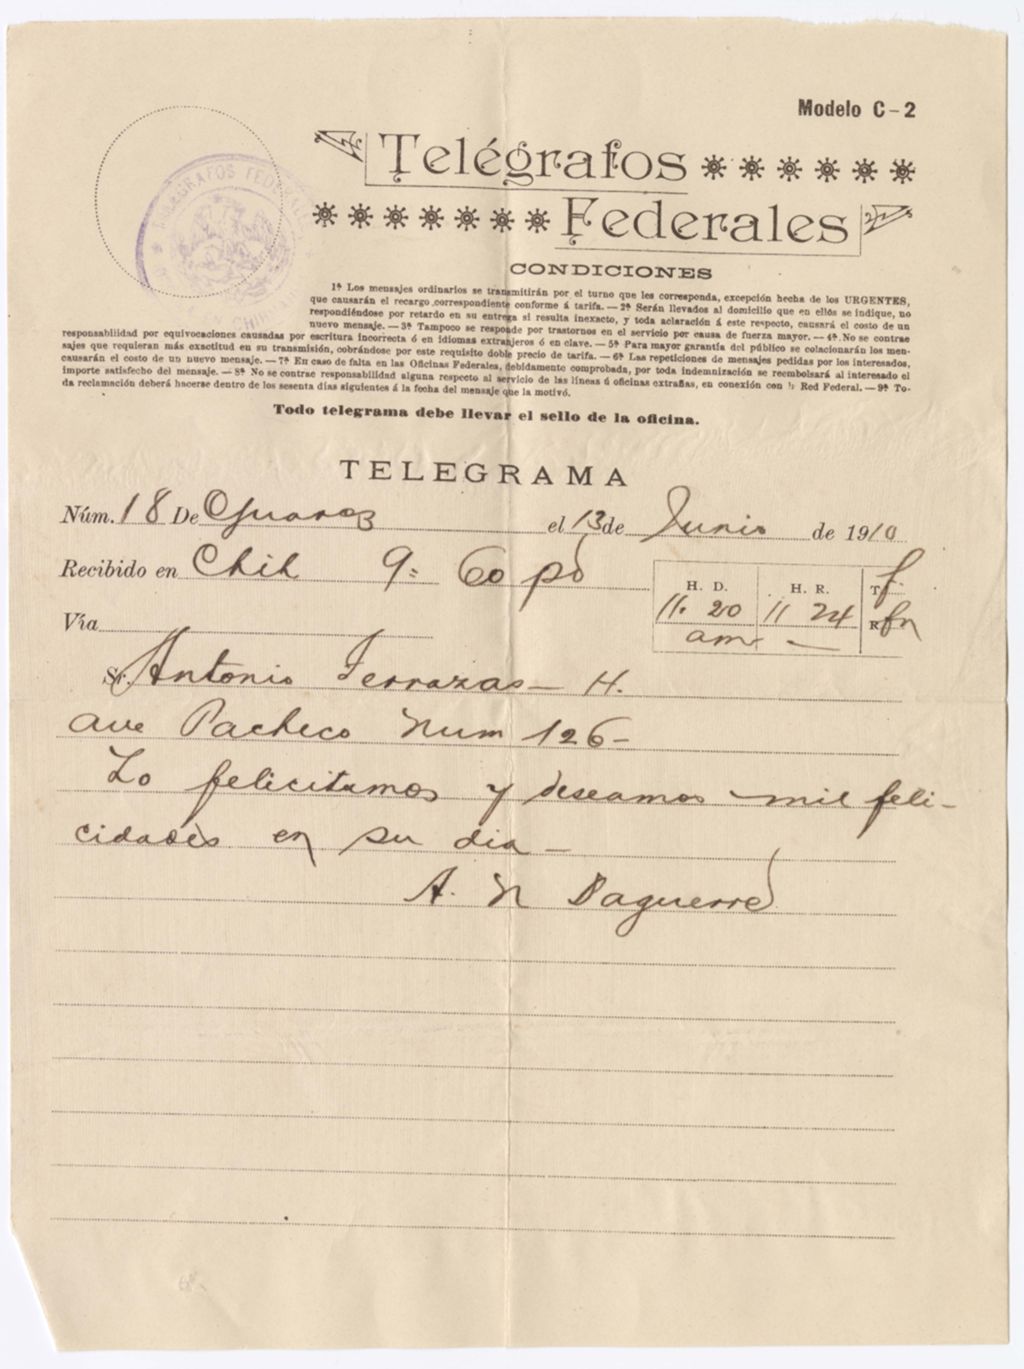 Modelo C-2
Telégrafos
Federales
CONDICIONES
1ª Los mensajes ordinarios se transmitirán por el turno que les corresponda, excepción hecha de los URGENTES,
que causarán el recargo correspondiente conforme á tarifa. — 2ª Serán llevados al domicilio que en ellos se indique, no
respondiéndose por retardo en su entrega si resulta inexacto, y toda aclaración á este respecto, causará el costo de un
nuevo mensaje. — 3ª Tampoco se responde por trastornos en el servicio por causa de fuerza mayor. — 4ª No se contrae
responsabilidad por equivocaciones causadas por escritura incorrecta ó en idiomas extranjeros ó en clave. — 5ª Para mayor garantía del público se colacionarán los men-
sajes que requieran más exactitud en su transmisión, cobrándose por este requisito doble precio de tarifa. — 6ª Las repeticiones de mensajes pedidas por los interesados,
causarán el costo de un nuevo mensaje. — 7ª En caso de falta en las Oficinas Federales, debidamente comprobada, por toda indemnización se reembolsará al interesado el
importe satisfecho del mensaje. — 8ª No se contrae responsabilidad alguna respecto al servicio de las líneas ú oficinas extrañas, en conexión con la Red Federal. — 9ª To-
da reclamación deberá hacerse dentro de los sesenta días siguientes á la fecha del mensaje que la motivó.
Todo telegrama debe llevar el sello de la oficina.
TELEGRAFOS FEDERALES
TELEGRAMA
Núm. 18 De CJuarez el 13 de Junio de 1910
Recibido en Chih 9= 60 pd
H. D. H. R. T. f
11. 20 11 24 R fn
am
Vía
Sr. Antonio Terrazas — H.
ave Pacheco Num 126 —
Lo felicitamos y deseamos mil feli-
cidades en su dia —
A. N Daguerre